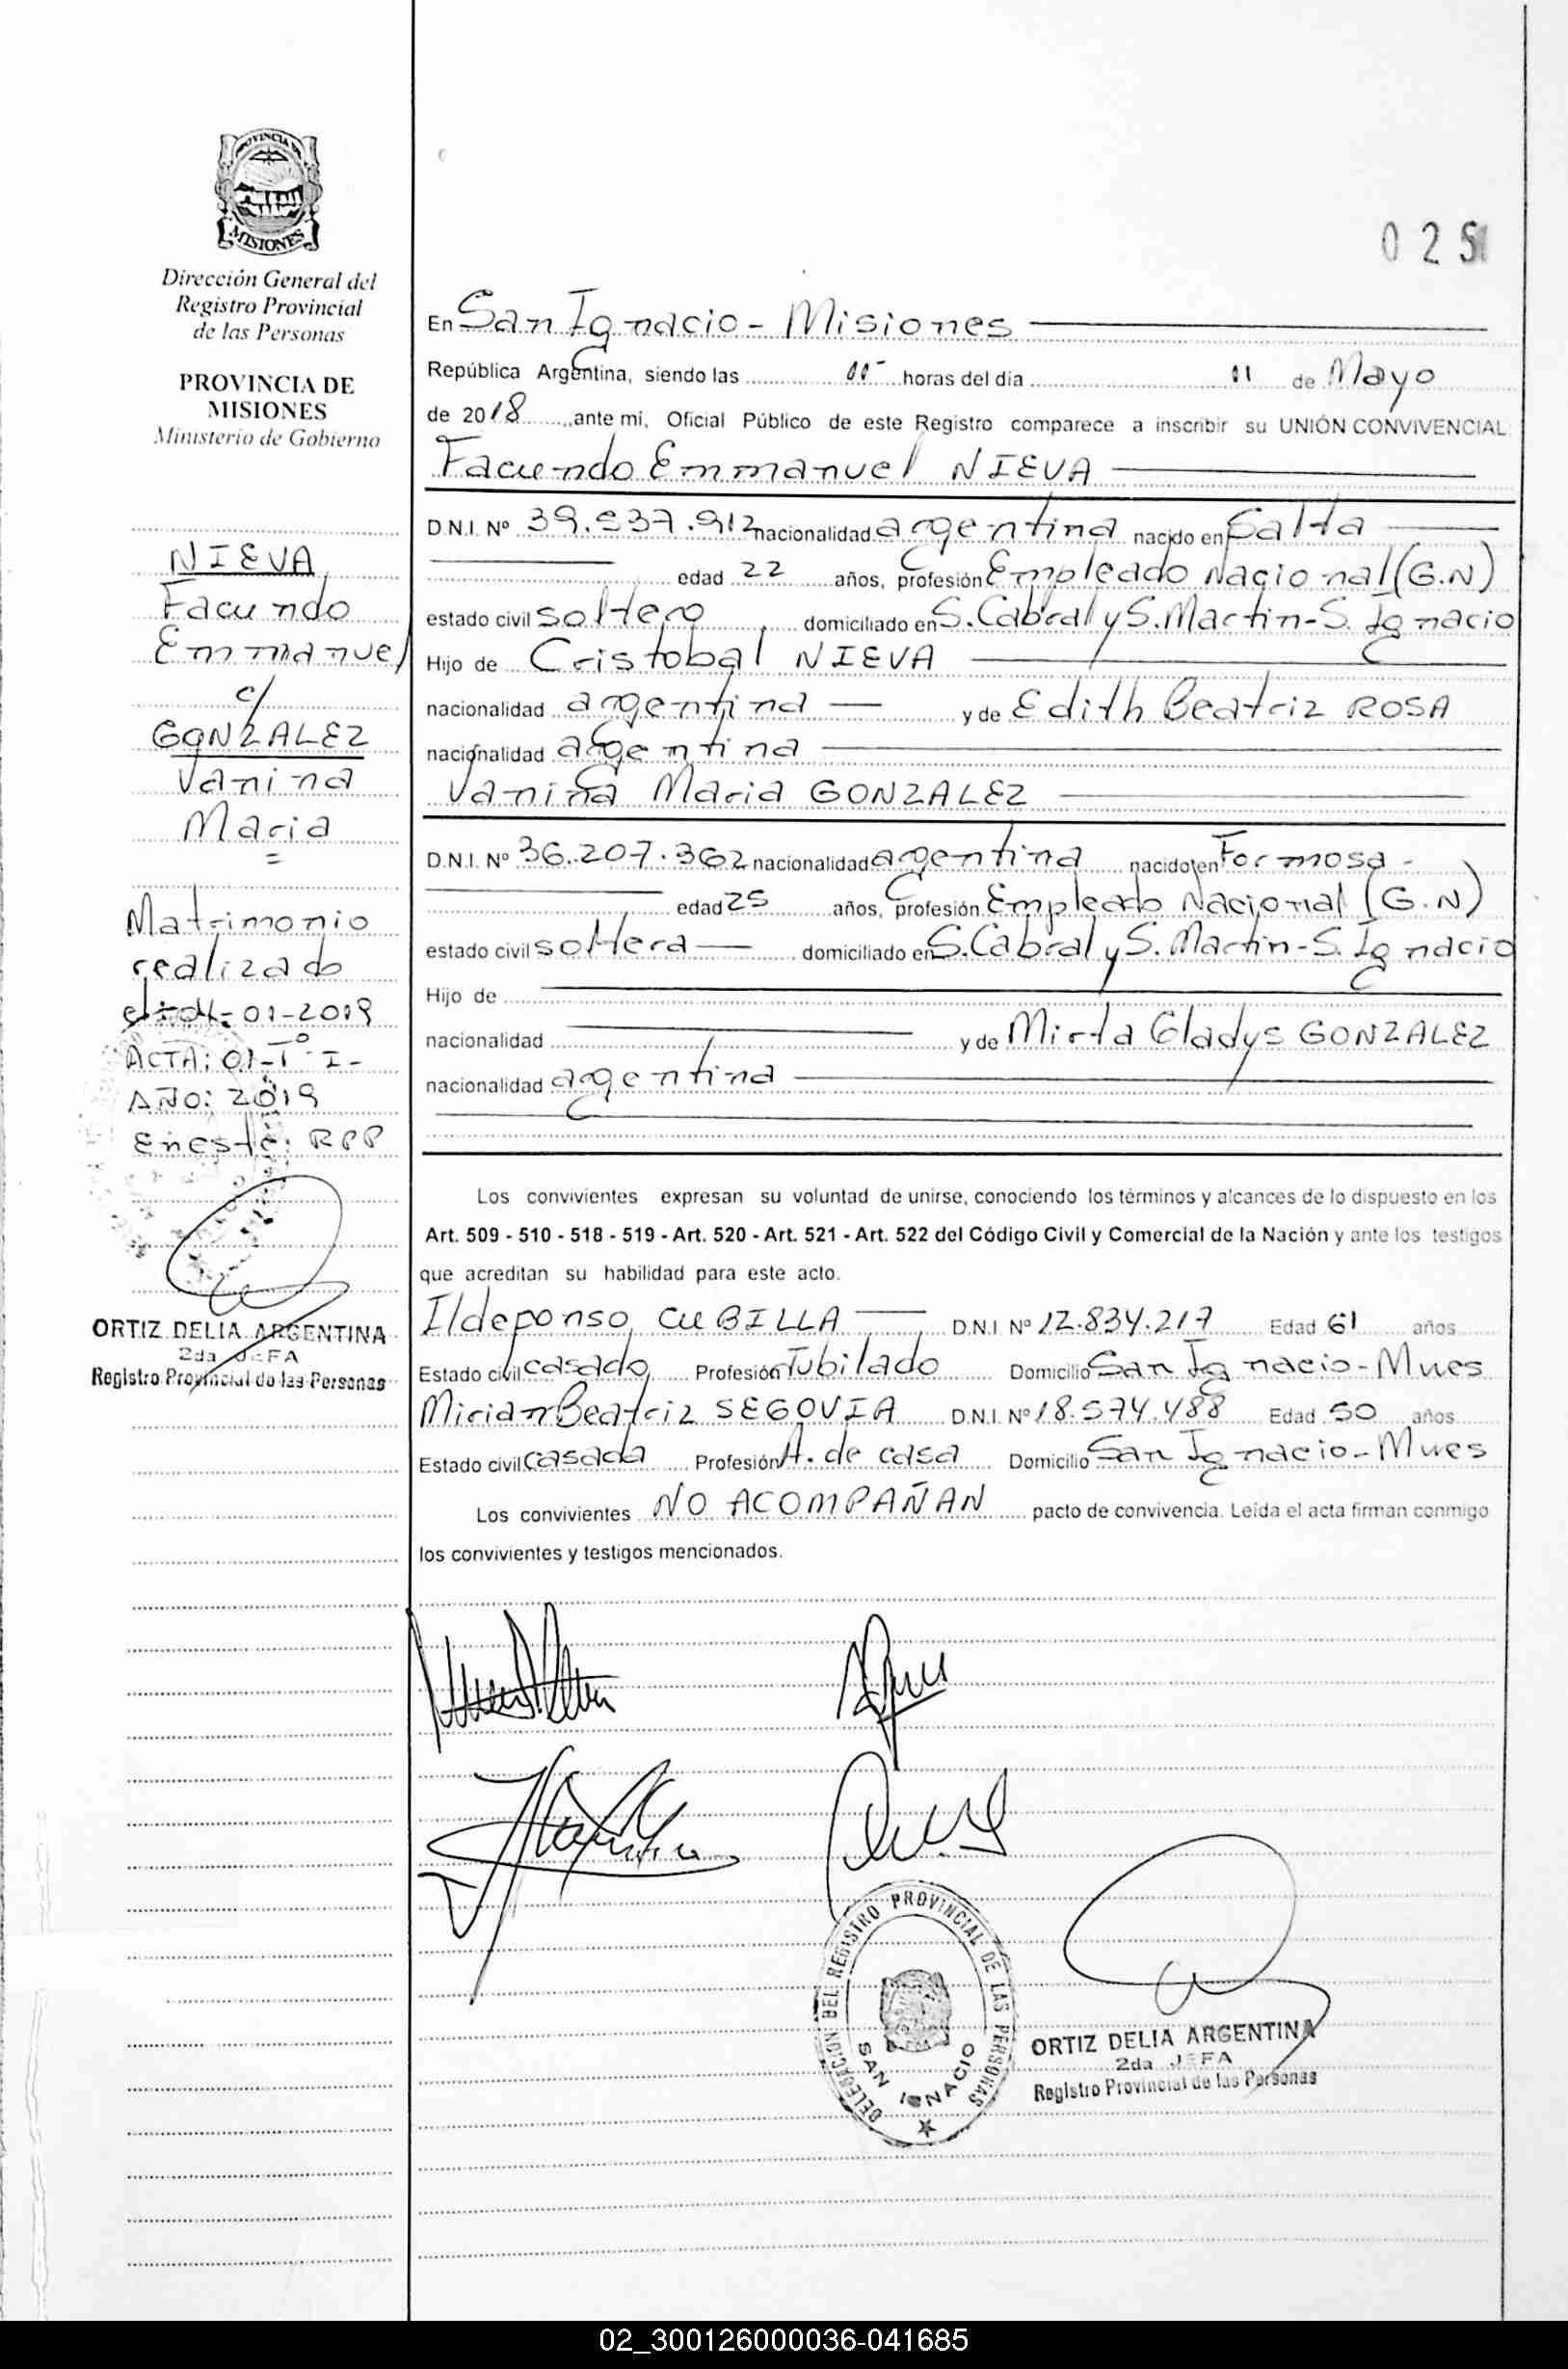 PROVINCIA DE
MISIONES
Dirección General del
Registro Provincial
de las Personas
PROVINCIA DE
MISIONES
Ministerio de Gobierno
NIEVA
Facundo
Emmanuel
c/
GONZALEZ
Vanina
Maria
=
Matrimonio
realizado
01-2019
ACTA: 01-Tº I-
AÑO: 2019
En este: RPP
ORTIZ DELIA ARGENTINA
2da JEFA
Registro Provincial de las Personas
025
En San Ignacio - Misiones
República Argentina, siendo las horas del día 11 de Mayo
de 2018 ante mi, Oficial Público de este Registro comparece a inscribir su UNIÓN CONVIVENCIAL
Facundo Emmanuel NIEVA
D.N.I. Nº 39.537.912 nacionalidad argentina nacido en Salta
edad 22 años, profesión Empleado Nacional (G.N)
estado civil soltero domiciliado en S. Cabral y S. Martin-S. Ignacio
Hijo de Cristobal NIEVA
nacionalidad argentina y de Edith Beatriz ROSA
nacionalidad argentina
Vanina Maria GONZALEZ
D.N.I. Nº 36.207.362 nacionalidad argentina nacido en Formosa -
edad 25 años, profesión Empleado Nacional (G.N)
estado civil soltera domiciliado en S. Cabral y S. Martin-S. Ignacio
Hijo de
nacionalidad y de Mirta Gladys GONZALEZ
nacionalidad argentina
Los convivientes expresan su voluntad de unirse, conociendo los términos y alcances de lo dispuesto en los
Art. 509 - 510 - 518 - 519 - Art. 520 - Art. 521 - Art. 522 del Código Civil y Comercial de la Nación y ante los testigos
que acreditan su habilidad para este acto.
Ildeponso CUBILLA D.N.I Nº 12.834.217 Edad 61 años
Estado civil casado Profesión Jubilado Domicilio San Ignacio - Mnes
Mirian Beatriz SEGOVIA D.N.I. Nº 18.574.488 Edad 50 años
Estado civil casada Profesión A. de casa Domicilio San Ignacio - Mnes
Los convivientes NO ACOMPAÑAN pacto de convivencia. Leída el acta firman conmigo
los convivientes y testigos mencionados.
DELEGACION DEL REGISTRO PROVINCIAL DE LAS PERSONAS
SAN IGNACIO
ORTIZ DELIA ARGENTINA
2da JEFA
Registro Provincial de las Personas
02_300126000036-041685